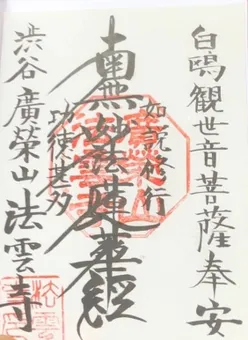 白鴎観世音菩薩奉安
如説修行
南無妙法蓮華経
功徳甚多
渋谷廣榮山法雲寺